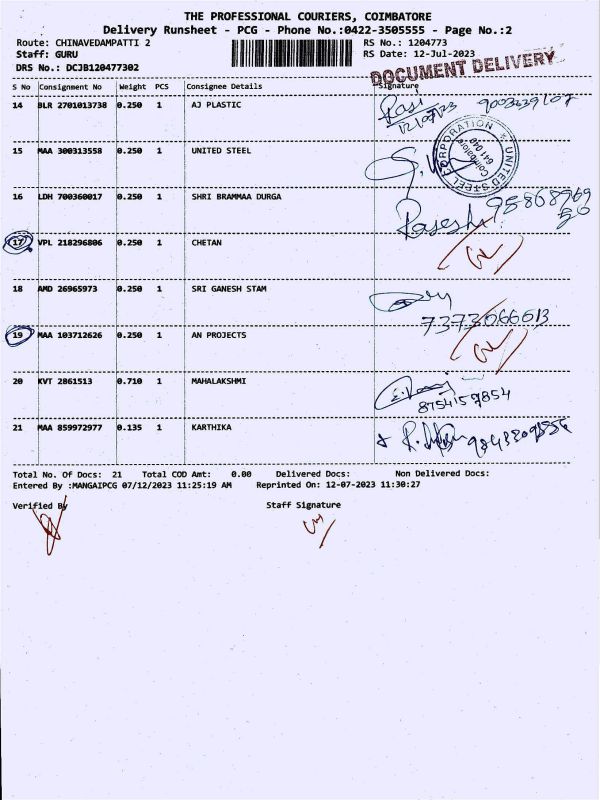 THE PROFESSIONAL COURIERS, COIMBATORE
Delivery Runsheet - PCG - Phone No.:0422-3505555 - Page No.:2
Route: CHINAVEDAMPATTI 2 RS No.: 1204773
Staff: GURU RS Date: 12-Jul-2023
DRS No.: DCJB120477302
DOCUMENT DELIVERY
S No Consignment No Weight PCS Consignee Details Signature
14 BLR 2701013738 0.250 1 AJ PLASTIC
12/07/23
15 MAA 300313558 0.250 1 UNITED STEEL
UNITED STEEL CORPORATION
Coimbatore
641 049
16 LDH 700360017 0.250 1 SHRI BRAMMAA DURGA
17 VPL 218296806 0.250 1 CHETAN
18 AMD 26965973 0.250 1 SRI GANESH STAM
7373066613
19 MAA 103712626 0.250 1 AN PROJECTS
20 KVT 2861513 0.710 1 MAHALAKSHMI
8754159854
21 MAA 859972977 0.135 1 KARTHIKA
Total No. Of Docs: 21 Total COD Amt: 0.00 Delivered Docs: Non Delivered Docs:
Entered By :MANGAIPCG 07/12/2023 11:25:19 AM Reprinted On: 12-07-2023 11:30:27
Verified By Staff Signature